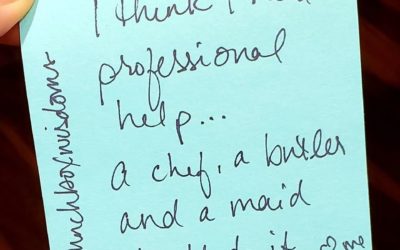 I think I
professional
help...
a chef, a butler
and a maid
me
unchboxwisdoms